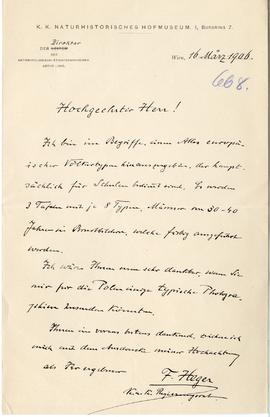 K. K. NATURHISTORISCHES HOFMUSEUM. I, BURGRING 7.
Direktor
DER
DER
ANTHROPOLOGISCH-ETHNOGRAPHISCHEN
ABTHEILUNG.
Wien, 16 März 1906.
668.
Hochgeehrter Herr!
Ich bin im Begriffe, einen Atlas europä-
ischer Völkertypen hinauszugeben, der haupt-
sächlich für Schulen bestimmt wird. Es werden
3 Tafeln mit je 8 Typen, Männer von 30-40
Jahren in Brustbildern, welche farbig ausgeführt
werden.
Ich wäre Ihnen nun sehr dankbar, wenn Sie
mir für die Polen einige typische Photogra-
phien zusenden könnten.
Ihnen im voraus bestens dankend, zeichne ich
mich mit dem Ausdrucke meiner Hochachtung
als Ihr ergebener
F. Heger
Regierungsrat